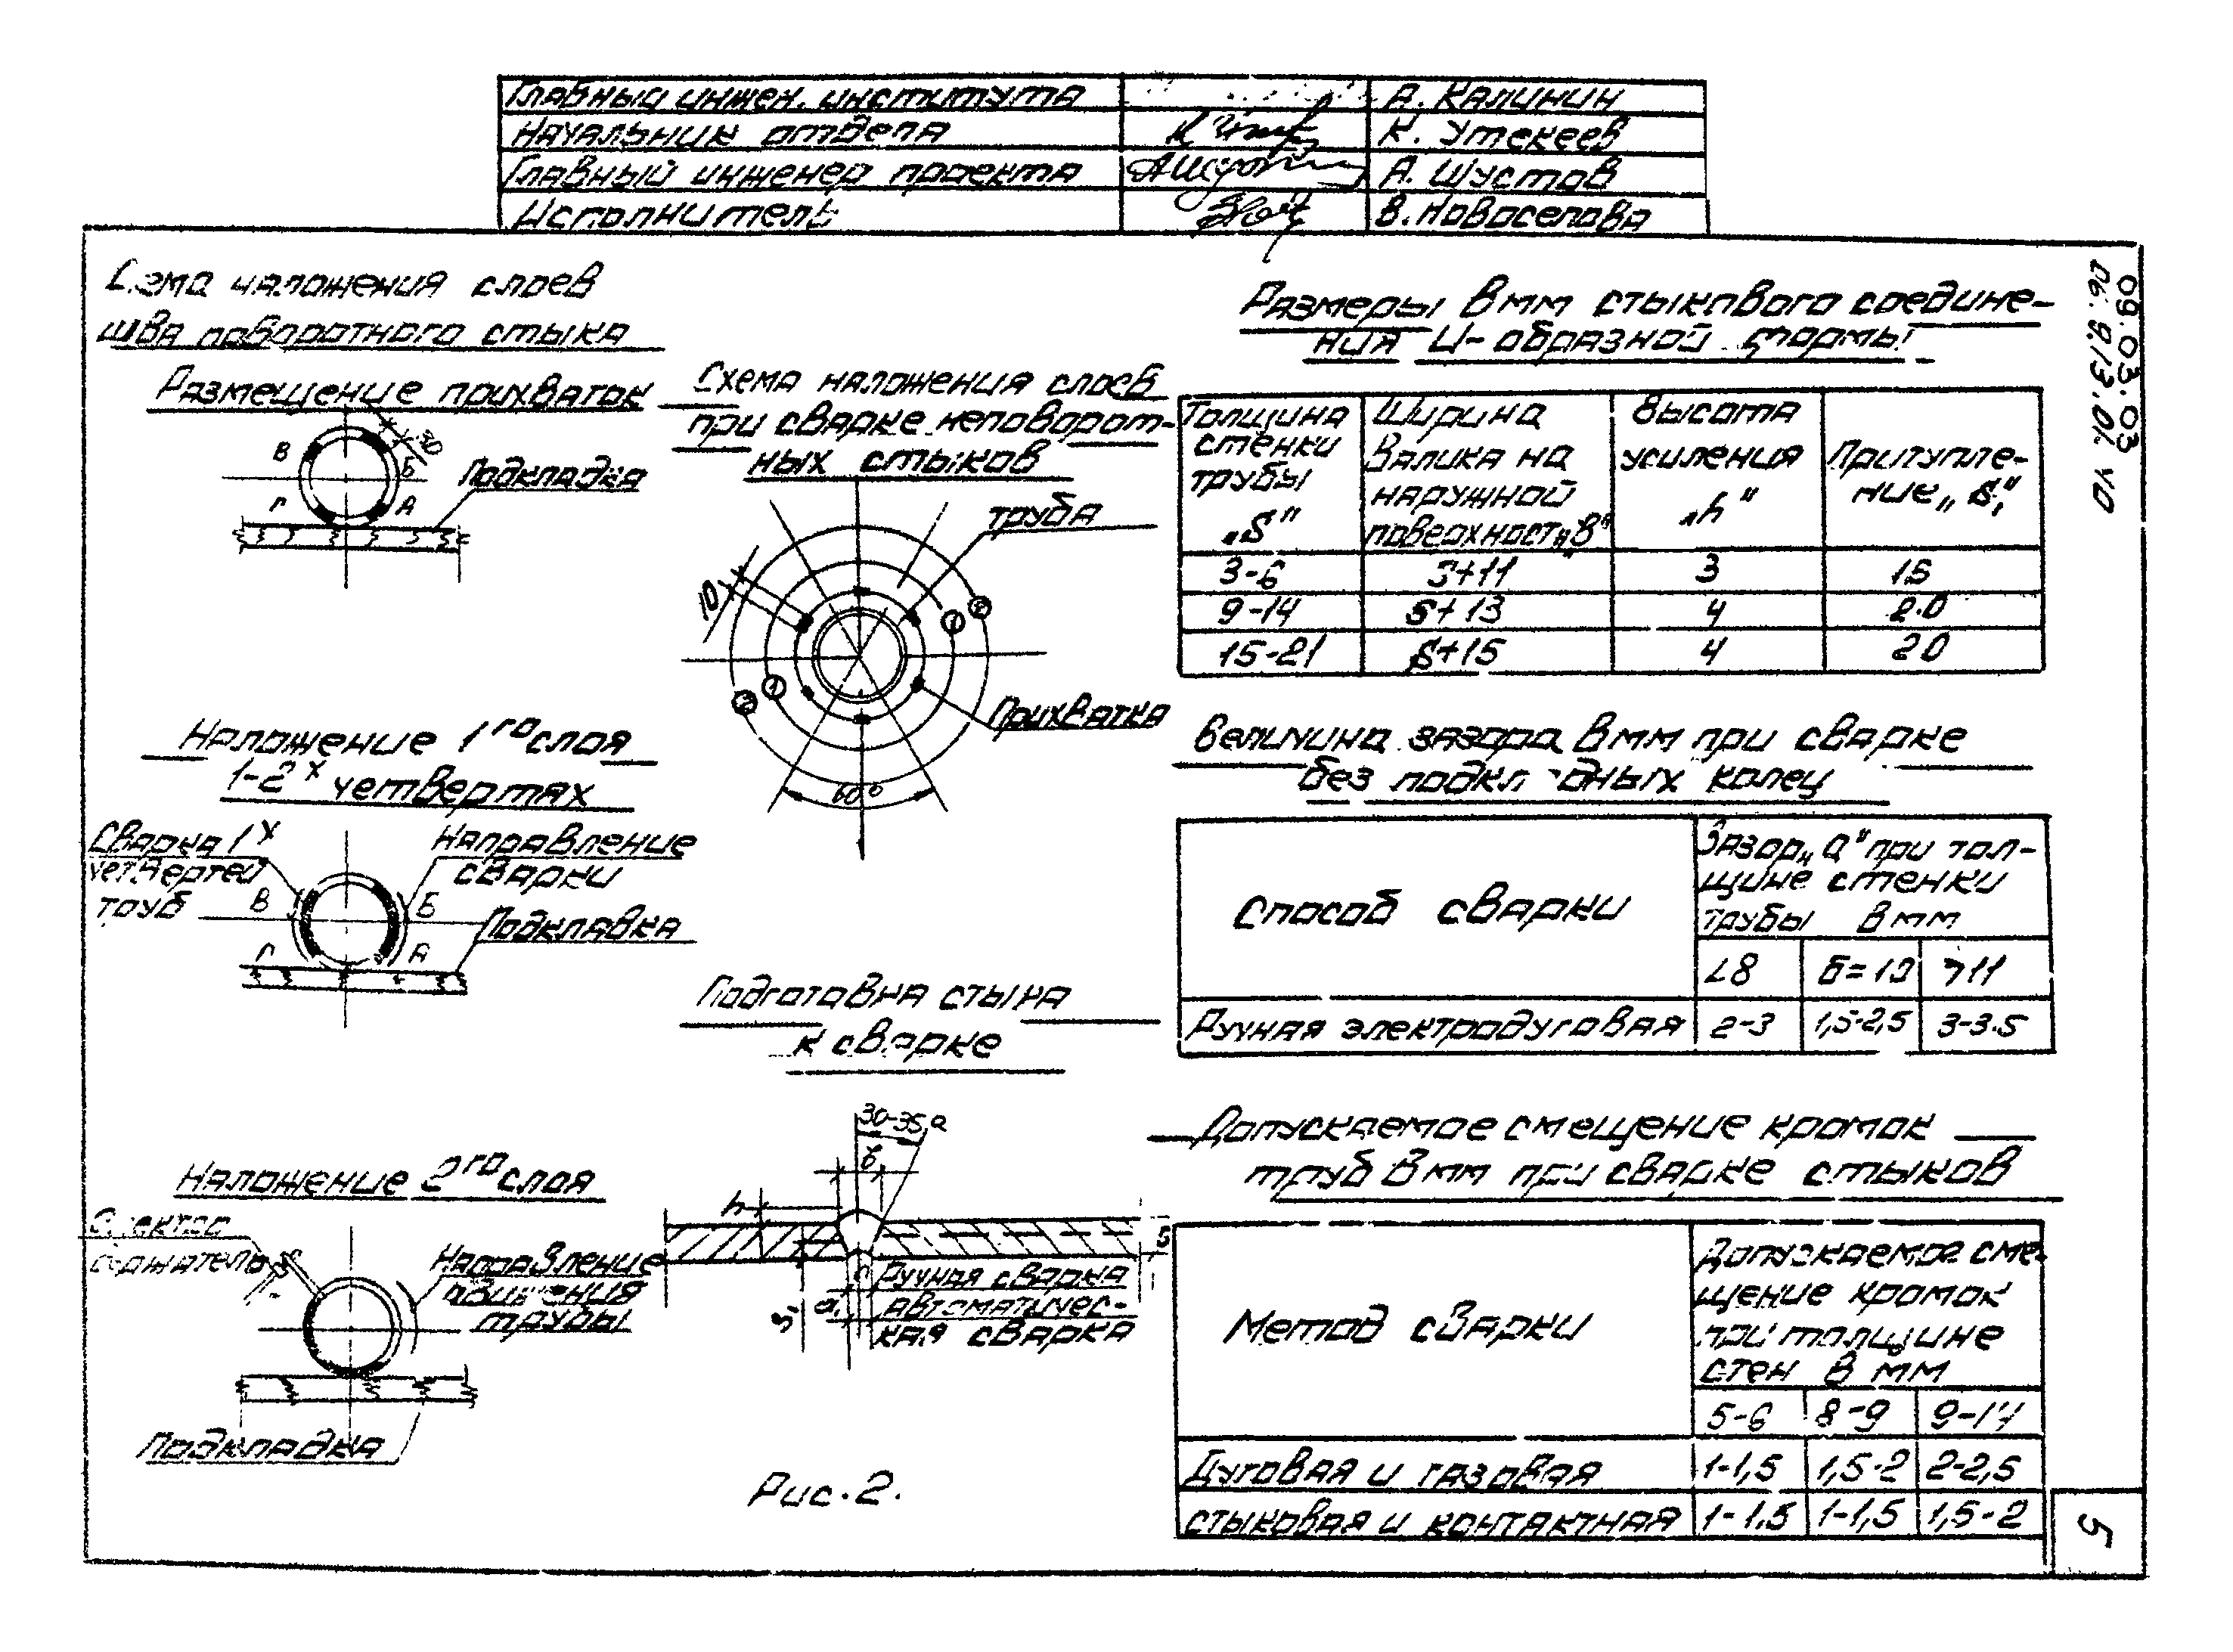 Главный инжен. института А. Калинин
Начальник отдела К. Утекеев
Главный инженер проекта А. Шустов
Исполнитель В. Новоселова
09.03.03
06.9.13.01.40
Схема наложения слоев
шва поворотного стыка
Размещение прихваток
30
В
Б
Г
А
Подкладка
Наложение 1го слоя
1-2х четвертях
Сварка 1х
четвертей
труб
Направление
сварки
В
Б
Г
А
Подкладка
Наложение 2го слоя
Электро
держатель
Направление
движения
трубы
Подкладка
Схема наложения слоев
при сварке неповорот-
ных стыков
труба
10
2
1
1
2
Прихватка
60°
Подготовка стыка
к сварке
30-35
в
h
S
Ручная сварка
автоматичес-
кая сварка
S₁
а
Рис. 2.
Размеры в мм стыкового соедине-
ния U-образной формы
Толщина стенки трубы „S" Ширина валика на наружной поверхност „в" Высота усиления „h" Притупле-ние „S₁"
3-6 S+11 3 15
9-14 S+13 4 2.0
15-21 S+15 4 20
Величина зазора в мм при сварке
без подкладных колец
Способ сварки
Зазор „а" при тол-
щине стенки
трубы в мм
∠8 Б=10 >11
Ручная электродуговая 2-3 1,5-2,5 3-3.5
Допускаемое смещение кромок
труб в мм при сварке стыков
Метод сварки
Допускаемое сме-
щение кромок
при толщине
стен в мм
5-6 8-9 9-14
Дуговая и газовая 1-1,5 1,5-2 2-2,5
стыковая и контактная 1-1.5 1-1,5 1,5-2
5